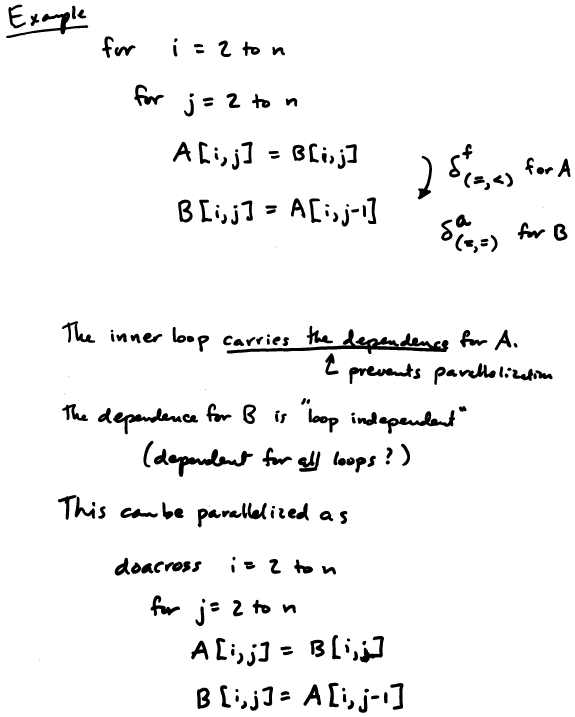 Example
for i = 2 to n
for j = 2 to n
A[i,j] = B[i,j]
δᶠ(=,<) for A
B[i,j] = A[i,j-1]
δᵃ(=,=) for B
The inner loop carries the dependence for A.
prevents parallelization
The dependence for B is "loop independent"
(dependent for all loops?)
This can be parallelized as
doacross i = 2 to n
for j = 2 to n
A[i,j] = B[i,j]
B[i,j] = A[i,j-1]